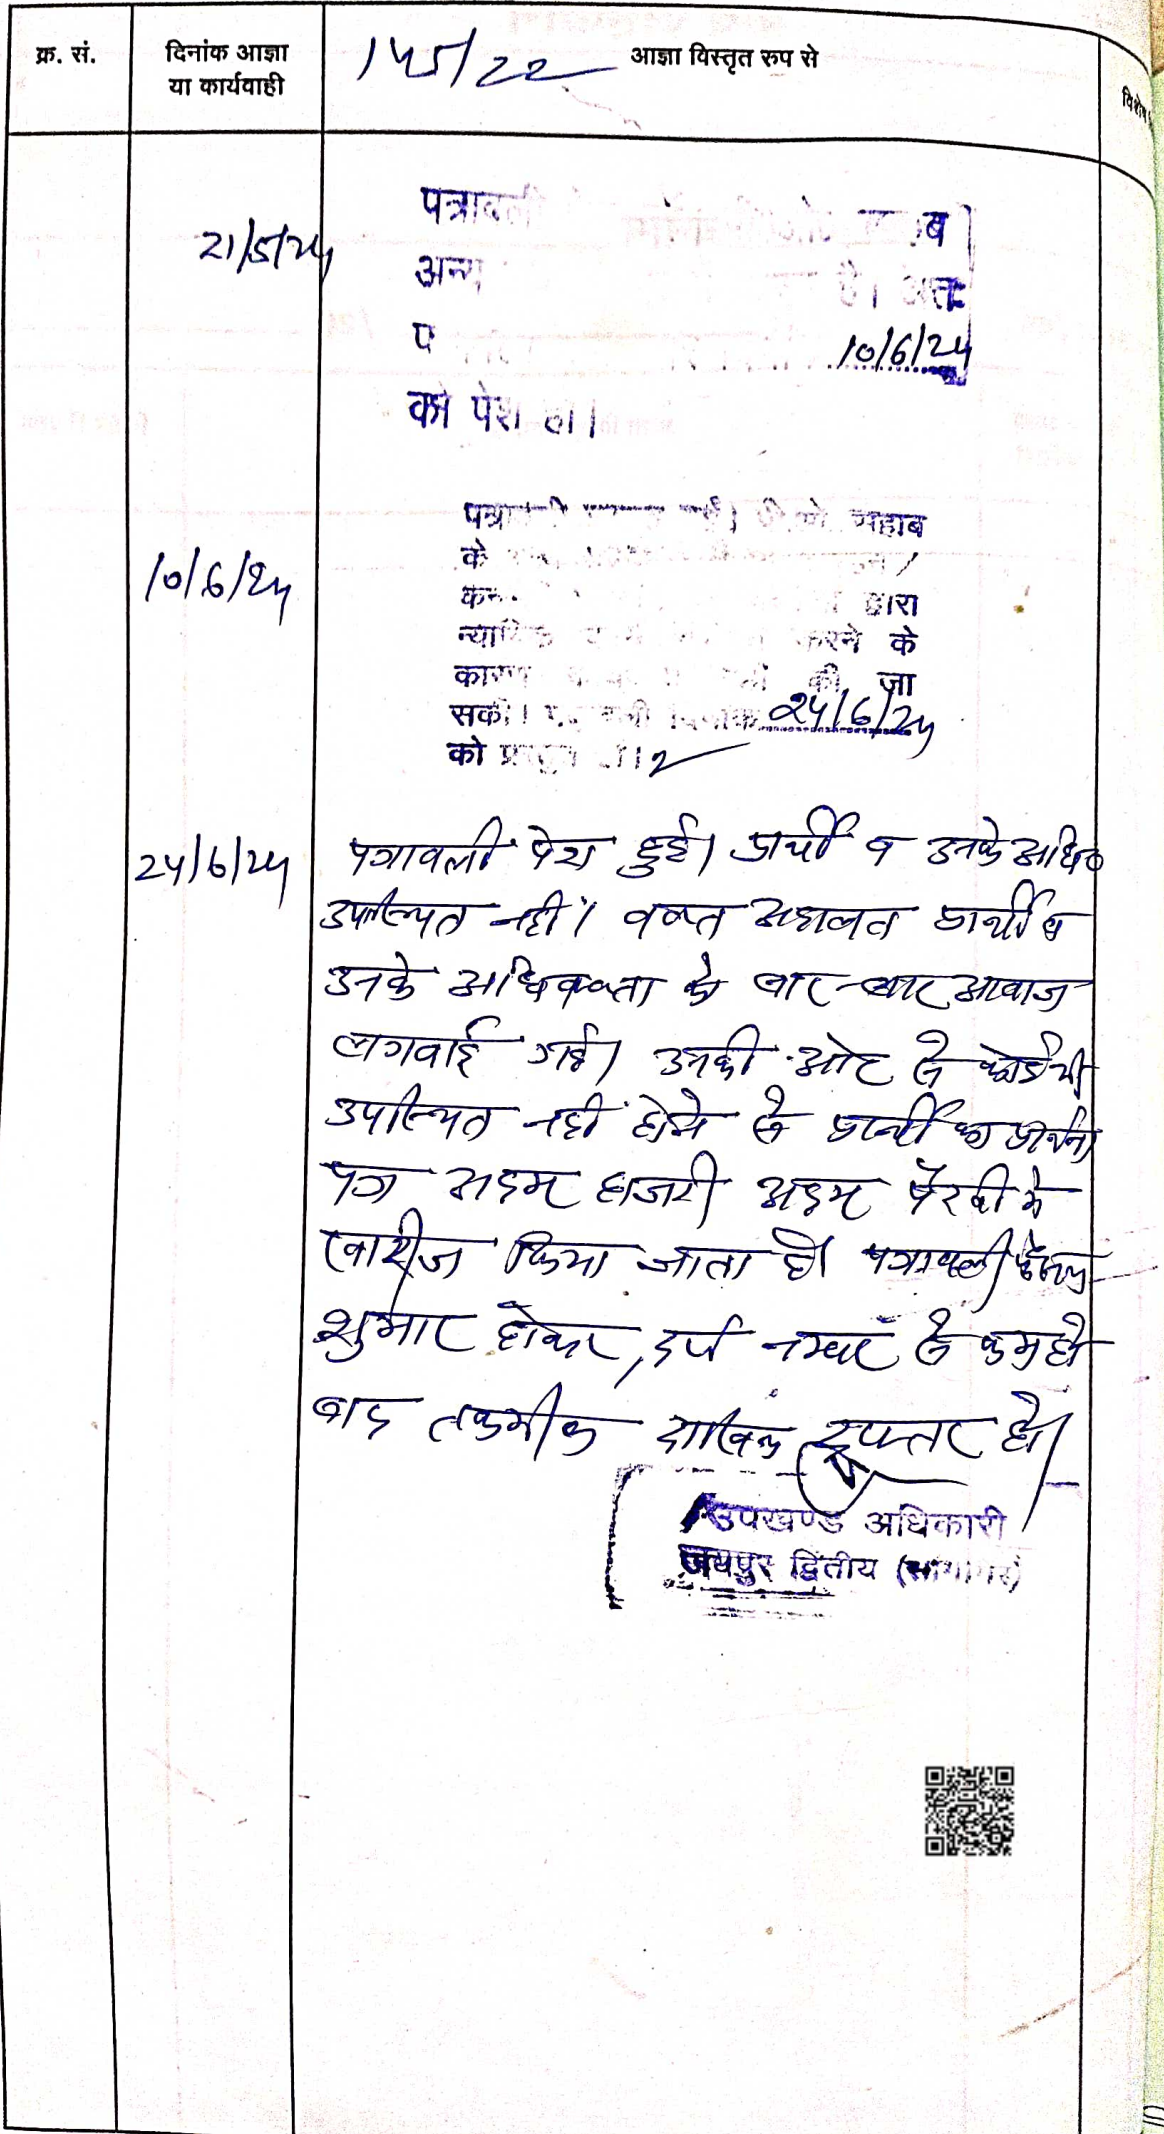 क्र. सं. दिनांक आज्ञा या कार्यवाही 145/22 आज्ञा विस्तृत रुप से
21/5/24 पत्रावली ब
अन्य है। अतः
प 10/6/24
को पेश हो।
पत्रावली साहब
10/6/24 के
द्वारा
न्यायिक करने के
कारण की जा
सकी। 24/6/24
को प्रस्तुत हो।
24/6/24 पत्रावली पेश हुई। प्रार्थी व उनके अधि०
उपस्थित नहीं। वक्त अदालत प्रार्थी व
उनके अधिवक्ता को बार-बार आवाज
लगवाई गई। उनकी ओर से कोई भी
उपस्थित नहीं होने से प्रार्थी का प्रार्थना
पत्र अदम हाजरी अदम पैरवी मे
खारीज किया जाता है। पत्रावली फैसल
शुमार होकर, दर्ज नम्बर से कम हो
बाद तकमील दाखिल दफ्तर हो।
उपखण्ड अधिकारी
जयपुर द्वितीय (सांगानेर)